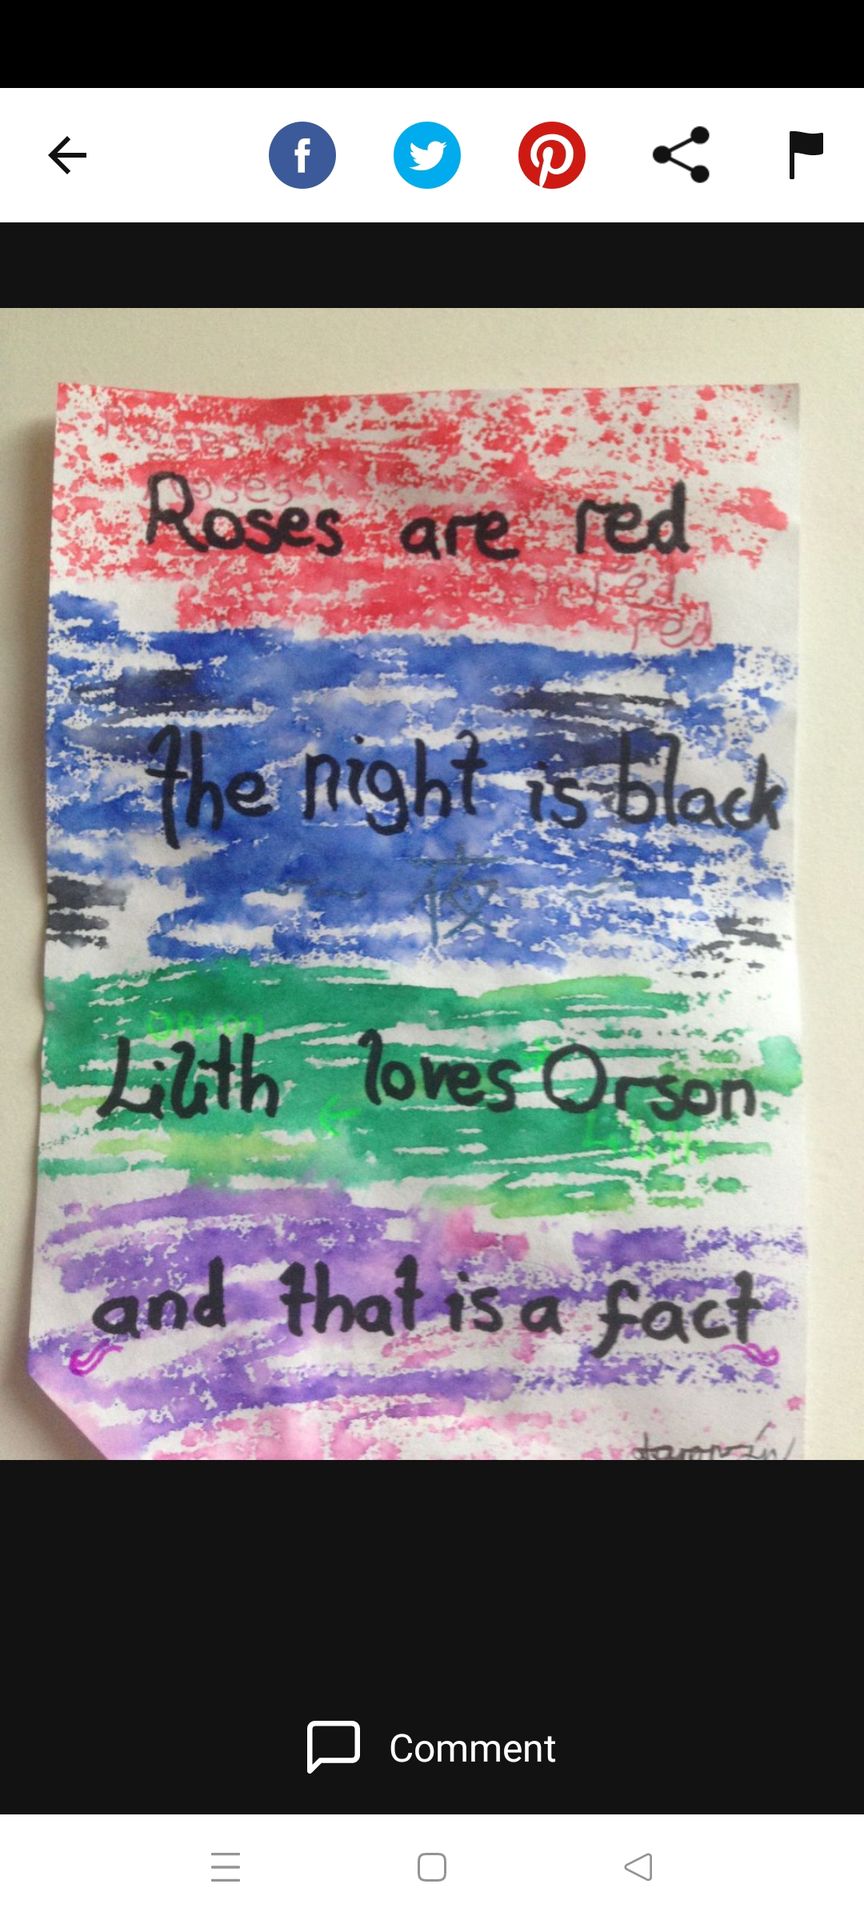 Roses
Roses
Roses are red
red
red
the night is black
夜
Orson
Lilith loves Orson
Lilith
and that is a fact
Comment